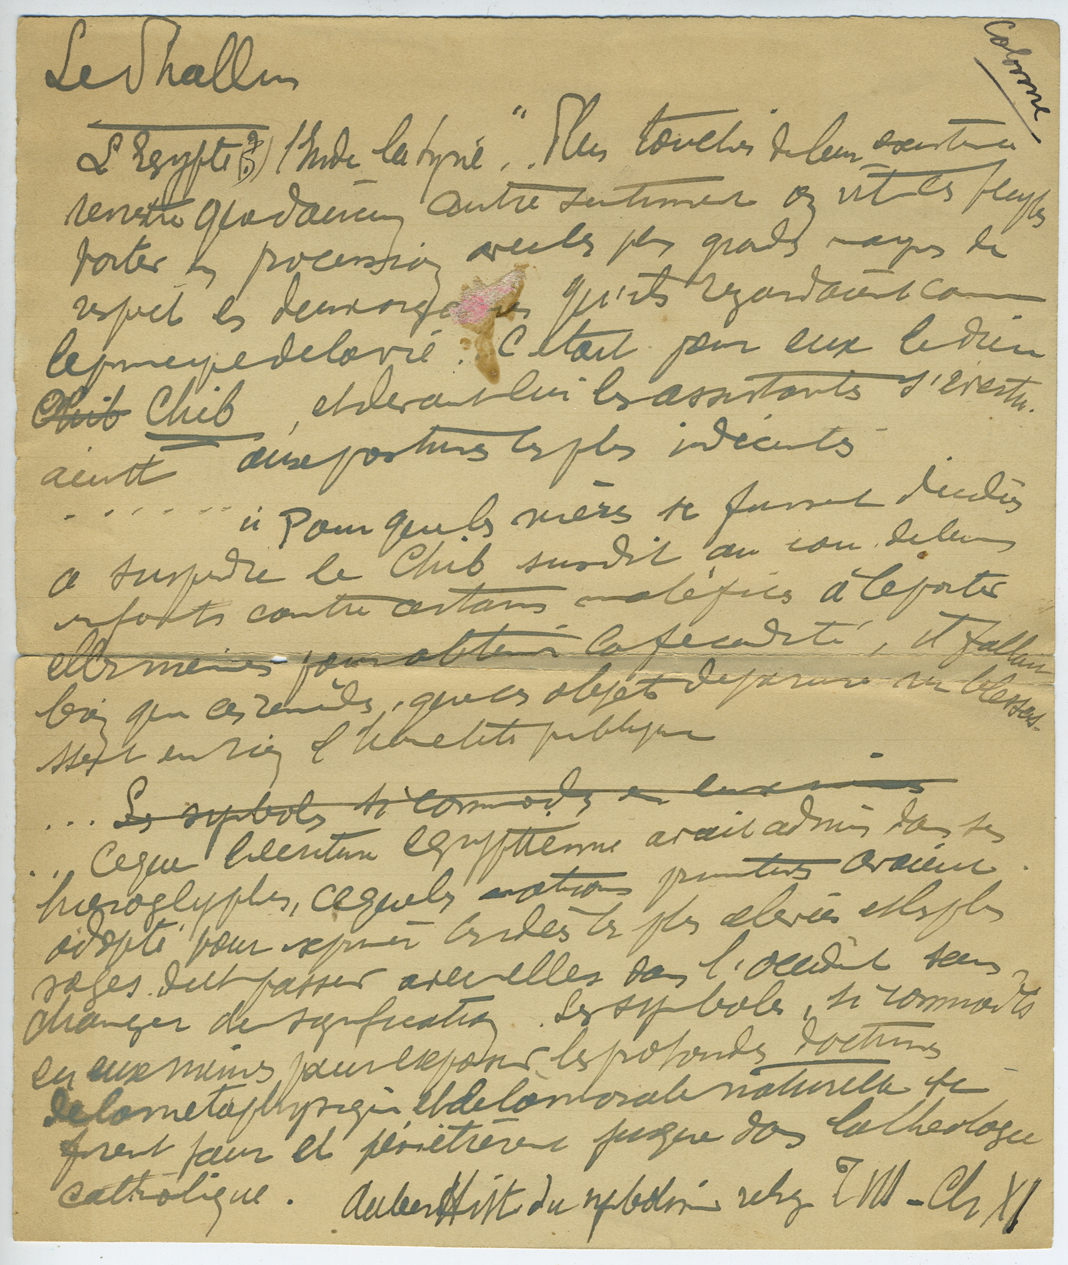 Colonne
Le Phallus
L'Egypte, l'Inde la Syrie "... Plus touchés de leur existence
renestre que d'aucun autre sentiment on vit les peuples
porter en processions avec les plus grandes marques de
respect les deux organes qu'ils regardaient comme
le principe de la vie. C'etait pour eux le dieu
Chib Chib, et devant lui les assistants s'évertu-
aient aux postures les plus indécentes
....... " Pour que les mères se fussent décidées
a suspendre le Chib susdit au cou de leurs
enfants contre certains maléfices à le porter
elles memes pour obtenir la fecondité, il fallait
bien que ces remèdes, que ces objets de parure ne blessas-
sent en rien l'honnêteté publique
... Les symboles si commodes en eux memes
... Ce que l'ecriture egyptienne avait admis dans ses
hieroglyphes, ce que les nations peintres avaient
adopté pour exprimer les idées les plus elevées et les plus
sages dut passer avec elles dans l'occident sans
changer de signification. Les symboles, si commodes
en eux memes pour exposer les profondes doctrines
de la metaphysique et de la morale naturelle se
firent jour et pénétrèrent jusque dans la theologie
catholique. Auber Hist. du symbolisme relig T III - Ch XI